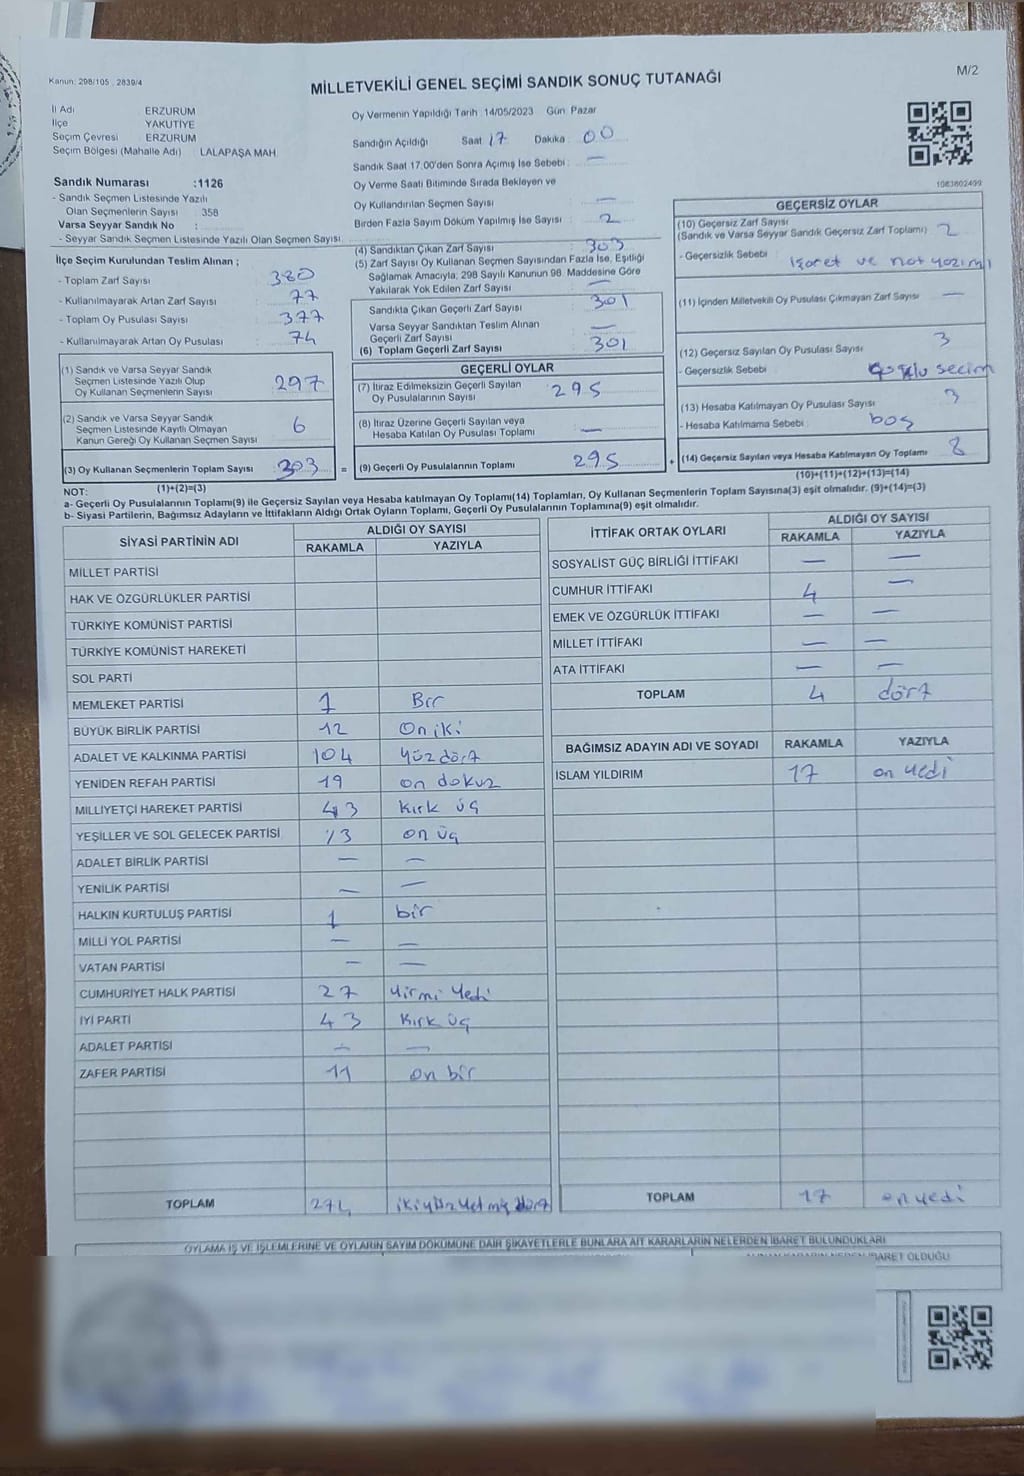 Kanun: 298/105 , 2839/4
MİLLETVEKİLİ GENEL SEÇİMİ SANDIK SONUÇ TUTANAĞI
M/2
İl Adı ERZURUM
İlçe YAKUTİYE
Seçim Çevresi ERZURUM
Seçim Bölgesi (Mahalle Adı) LALAPAŞA MAH.
Oy Vermenin Yapıldığı Tarih 14/05/2023 Gün: Pazar
Sandığın Açıldığı Saat 17 Dakika 00
Sandık Saat 17.00'den Sonra Açımış İse Sebebi : —
Oy Verme Saati Bitiminde Sırada Bekleyen ve
Oy Kullandırılan Seçmen Sayısı : —
Birden Fazla Sayım Döküm Yapılmış İse Sayısı : 2
1083802499
Sandık Numarası :1126
- Sandık Seçmen Listesinde Yazılı
Olan Seçmenlerin Sayısı : 358
Varsa Seyyar Sandık No :
- Seyyar Sandık Seçmen Listesinde Yazılı Olan Seçmen Sayısı
İlçe Seçim Kurulundan Teslim Alınan ;
- Toplam Zarf Sayısı : 380
- Kullanılmayarak Artan Zarf Sayısı : 77
- Toplam Oy Pusulası Sayısı : 377
- Kullanılmayarak Artan Oy Pusulası : 74
(1) Sandık ve Varsa Seyyar Sandık
Seçmen Listesinde Yazılı Olup
Oy Kullanan Seçmenlerin Sayısı : 297
(2) Sandık ve Varsa Seyyar Sandık
Seçmen Listesinde Kayıtlı Olmayan
Kanun Gereği Oy Kullanan Seçmen Sayısı 6
(3) Oy Kullanan Seçmenlerin Toplam Sayısı 303 =
(1)+(2)=(3)
(4) Sandıktan Çıkan Zarf Sayısı : 303
(5) Zarf Sayısı Oy Kullanan Seçmen Sayısından Fazla İse, Eşitliği
Sağlamak Amacıyla; 298 Sayılı Kanunun 98. Maddesine Göre
Yakılarak Yok Edilen Zarf Sayısı : —
Sandıkta Çıkan Geçerli Zarf Sayısı : 301
Varsa Seyyar Sandıktan Teslim Alınan
Geçerli Zarf Sayısı : —
(6) Toplam Geçerli Zarf Sayısı : 301
GEÇERLİ OYLAR
(7) İtiraz Edilmeksizin Geçerli Sayılan
Oy Pusulalarının Sayısı : 295
(8) İtiraz Üzerine Geçerli Sayılan veya
Hesaba Katılan Oy Pusulası Toplamı : —
(9) Geçerli Oy Pusulalarının Toplamı : 295 +
GEÇERSİZ OYLAR
(10) Geçersiz Zarf Sayısı
(Sandık ve Varsa Seyyar Sandık Geçersiz Zarf Toplamı) 2
- Geçersizlik Sebebi : işaret ve not yazımı
(11) İçinden Milletvekili Oy Pusulası Çıkmayan Zarf Sayısı : —
(12) Geçersiz Sayılan Oy Pusulası Sayısı 3
- Geçersizlik Sebebi seçim
(13) Hesaba Katılmayan Oy Pusulası Sayısı 3
- Hesaba Katılmama Sebebi : boş
(14) Geçersiz Sayılan veya Hesaba Katılmayan Oy Toplamı 8
(10)+(11)+(12)+(13)=(14)
NOT:
a- Geçerli Oy Pusulalarının Toplamı(9) ile Geçersiz Sayılan veya Hesaba katılmayan Oy Toplamı(14) Toplamları, Oy Kullanan Seçmenlerin Toplam Sayısına(3) eşit olmalıdır. (9)+(14)=(3)
b- Siyasi Partilerin, Bağımsız Adayların ve İttifakların Aldığı Ortak Oyların Toplamı, Geçerli Oy Pusulalarının Toplamına(9) eşit olmalıdır.
SİYASİ PARTİNİN ADI ALDIĞI OY SAYISI
RAKAMLA YAZIYLA
MİLLET PARTİSİ
HAK VE ÖZGÜRLÜKLER PARTİSİ
TÜRKİYE KOMÜNİST PARTİSİ
TÜRKİYE KOMÜNİST HAREKETİ
SOL PARTİ
MEMLEKET PARTİSİ 1 Bir
BÜYÜK BİRLİK PARTİSİ 12 On iki
ADALET VE KALKINMA PARTİSİ 104 Yüz dört
YENİDEN REFAH PARTİSİ 19 on dokuz
MİLLİYETÇİ HAREKET PARTİSİ 43 Kırk üç
YEŞİLLER VE SOL GELECEK PARTİSİ 13 on üç
ADALET BİRLİK PARTİSİ — —
YENİLİK PARTİSİ — —
HALKIN KURTULUŞ PARTİSİ 1 bir
MİLLİ YOL PARTİSİ — —
VATAN PARTİSİ — —
CUMHURİYET HALK PARTİSİ 27 Yirmi Yedi
İYİ PARTİ 43 Kırk üç
ADALET PARTİSİ — —
ZAFER PARTİSİ 11 on bir
TOPLAM 274 ikiyüz yetmiş dört
İTTİFAK ORTAK OYLARI ALDIĞI OY SAYISI
RAKAMLA YAZIYLA
SOSYALİST GÜÇ BİRLİĞİ İTTİFAKI — —
CUMHUR İTTİFAKI 4 —
EMEK VE ÖZGÜRLÜK İTTİFAKI — —
MİLLET İTTİFAKI — —
ATA İTTİFAKI — —
TOPLAM 4 dört
BAĞIMSIZ ADAYIN ADI VE SOYADI RAKAMLA YAZIYLA
İSLAM YILDIRIM 17 on yedi
TOPLAM 17 on yedi
OYLAMA İŞ VE İŞLEMLERİNE VE OYLARIN SAYIM DÖKÜMÜNE DAİR ŞİKAYETLERLE BUNLARA AİT KARARLARIN NELERDEN İBARET BULUNDUKLARI
İBARET OLDUĞU